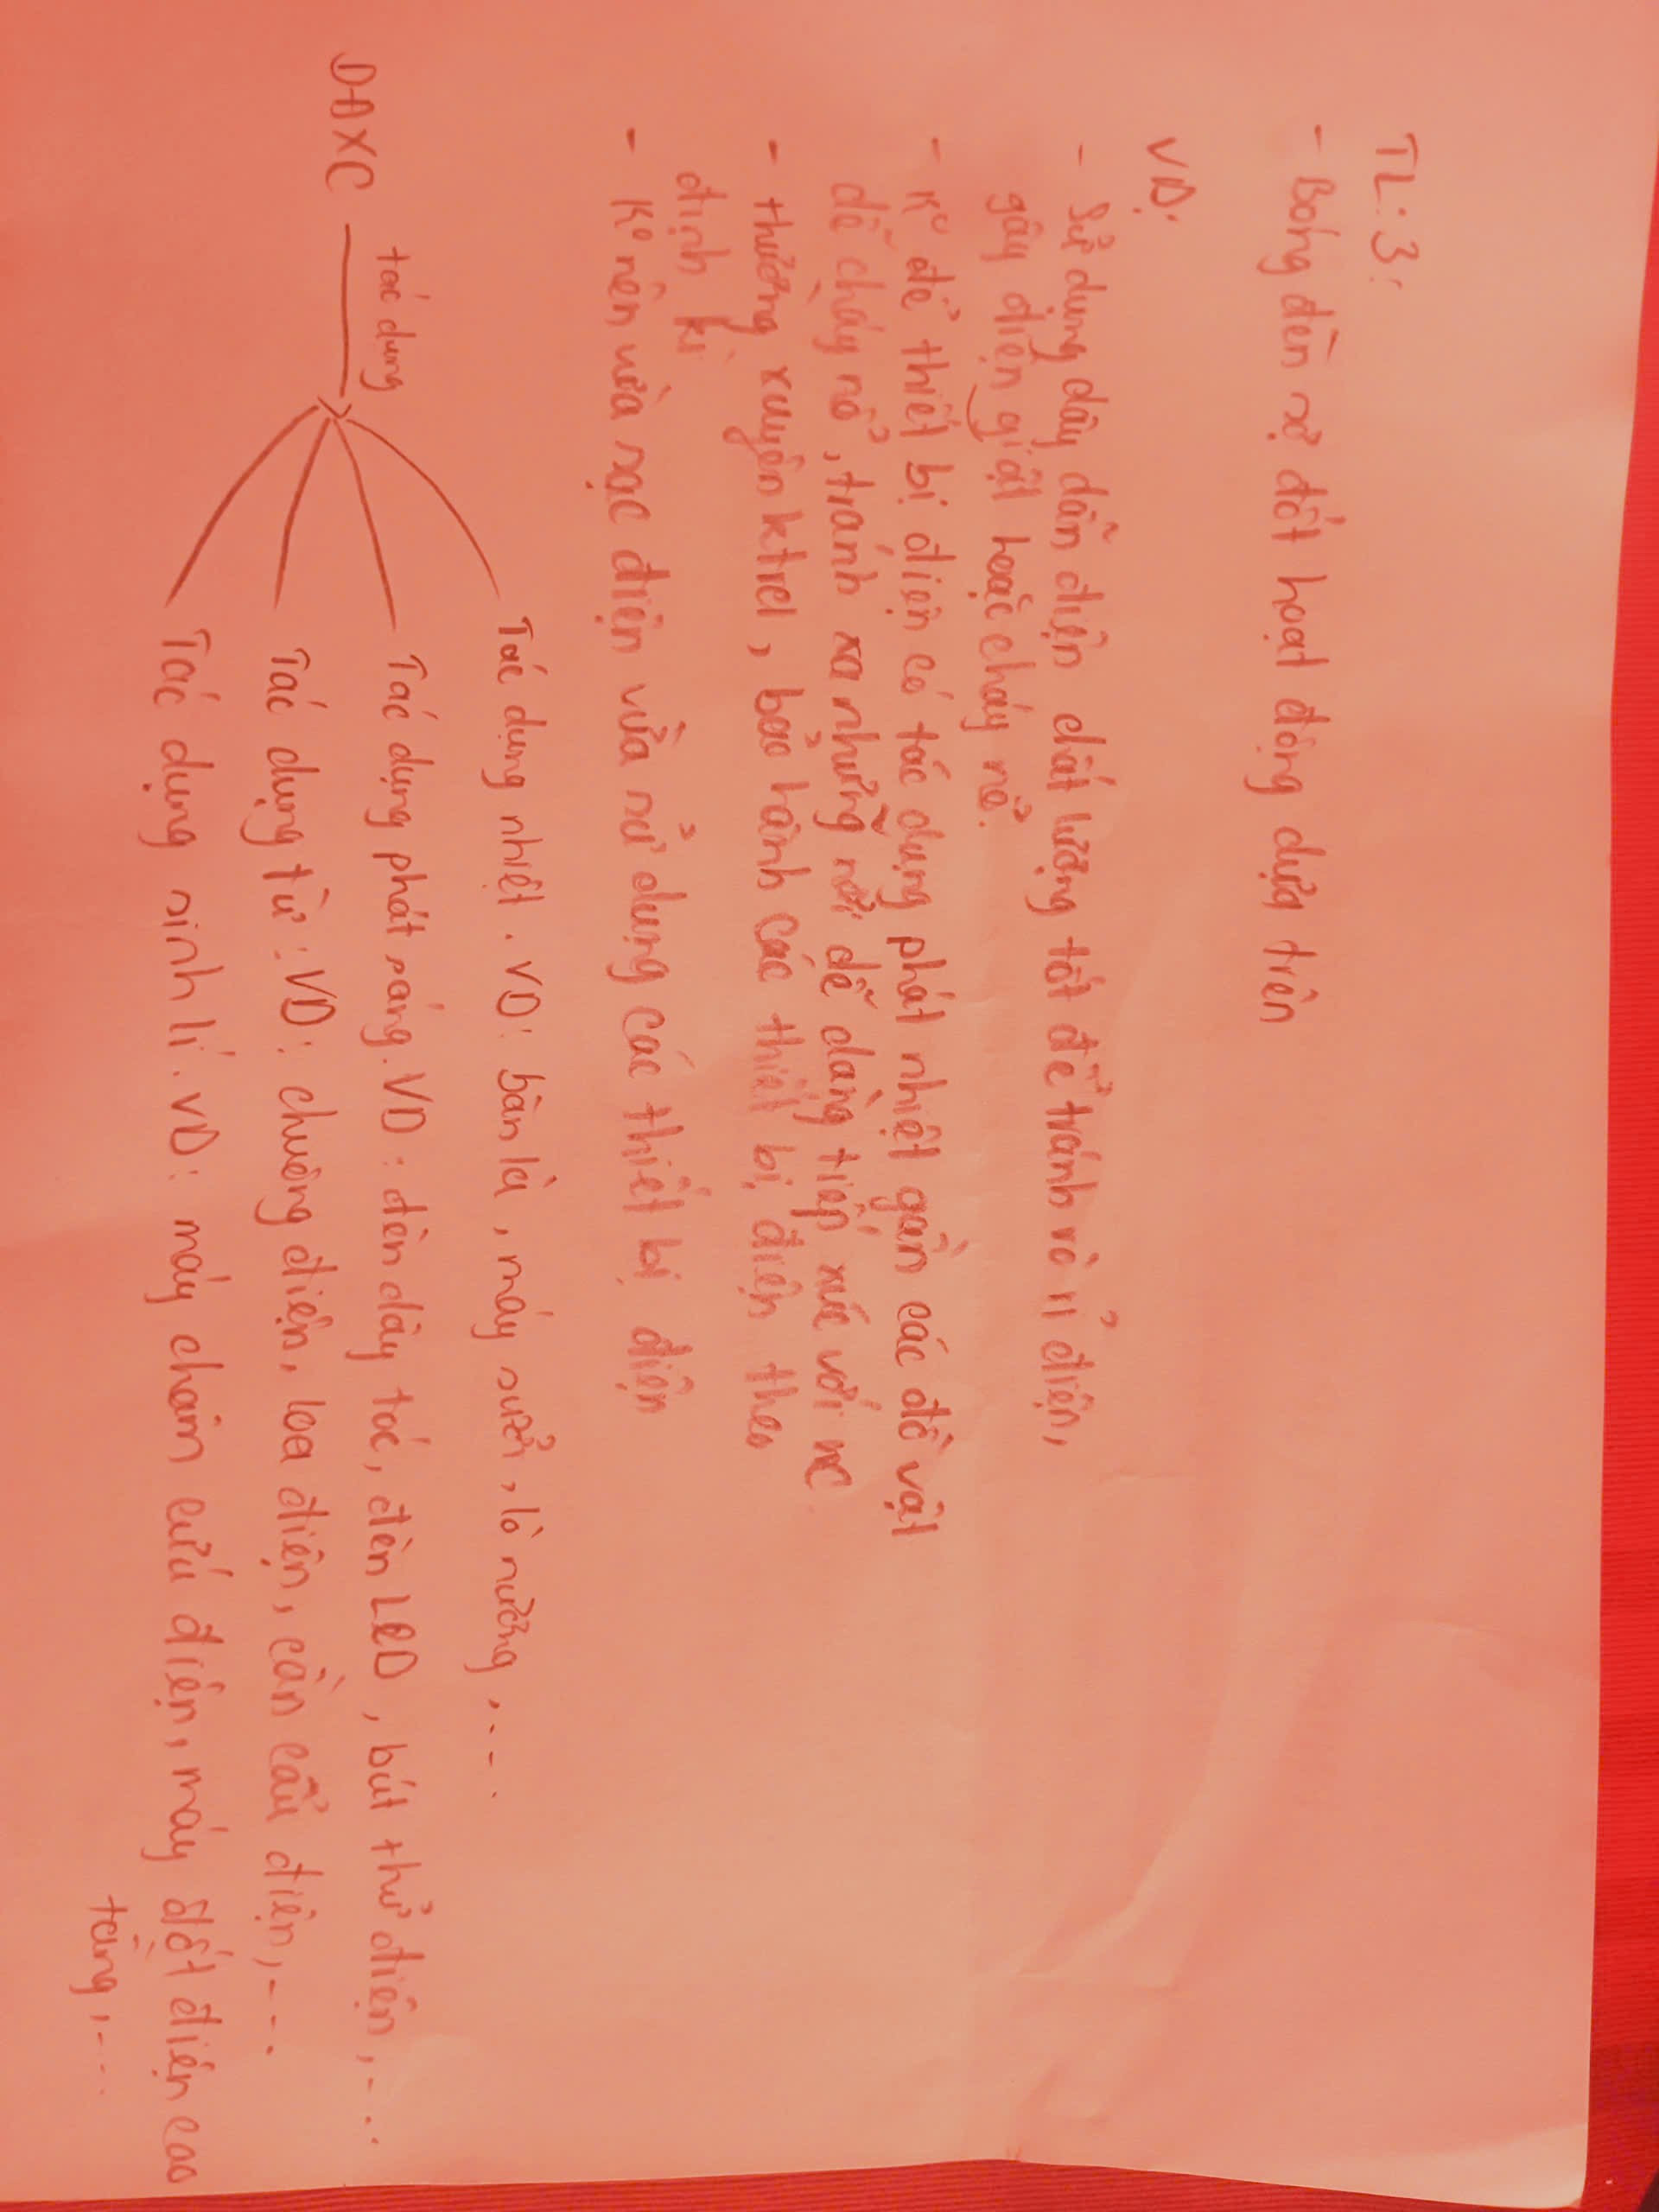 TL:3:
- Bóng đèn sợ đốt hoạt động dựa trên
VD:
- Sử dụng dây dẫn điện chất lượng tốt để tránh rò rỉ điện,
gây điện giật hoặc cháy nổ.
- K° để thiết bị điện có tác dụng phát nhiệt gần các đồ vật
dễ cháy nổ, tránh xa những nơi dễ dàng tiếp xúc với nc
- thường xuyên ktra, bảo hành các thiết bị điện theo
định kì
- K° nên vừa sạc điện vừa sử dụng các thiết bị điện
DĐXC tác dụng
Tác dụng nhiệt. VD: bàn là, máy sưởi, lò nướng,...
Tác dụng phát sáng. VD: đèn dây tóc, đèn LED, bút thử điện,...
Tác dụng từ: VD: chuông điện, loa điện, cần cẩu điện,...
Tác dụng sinh lí. VD: máy châm cứu điện, máy đốt điện cao
tầng,...